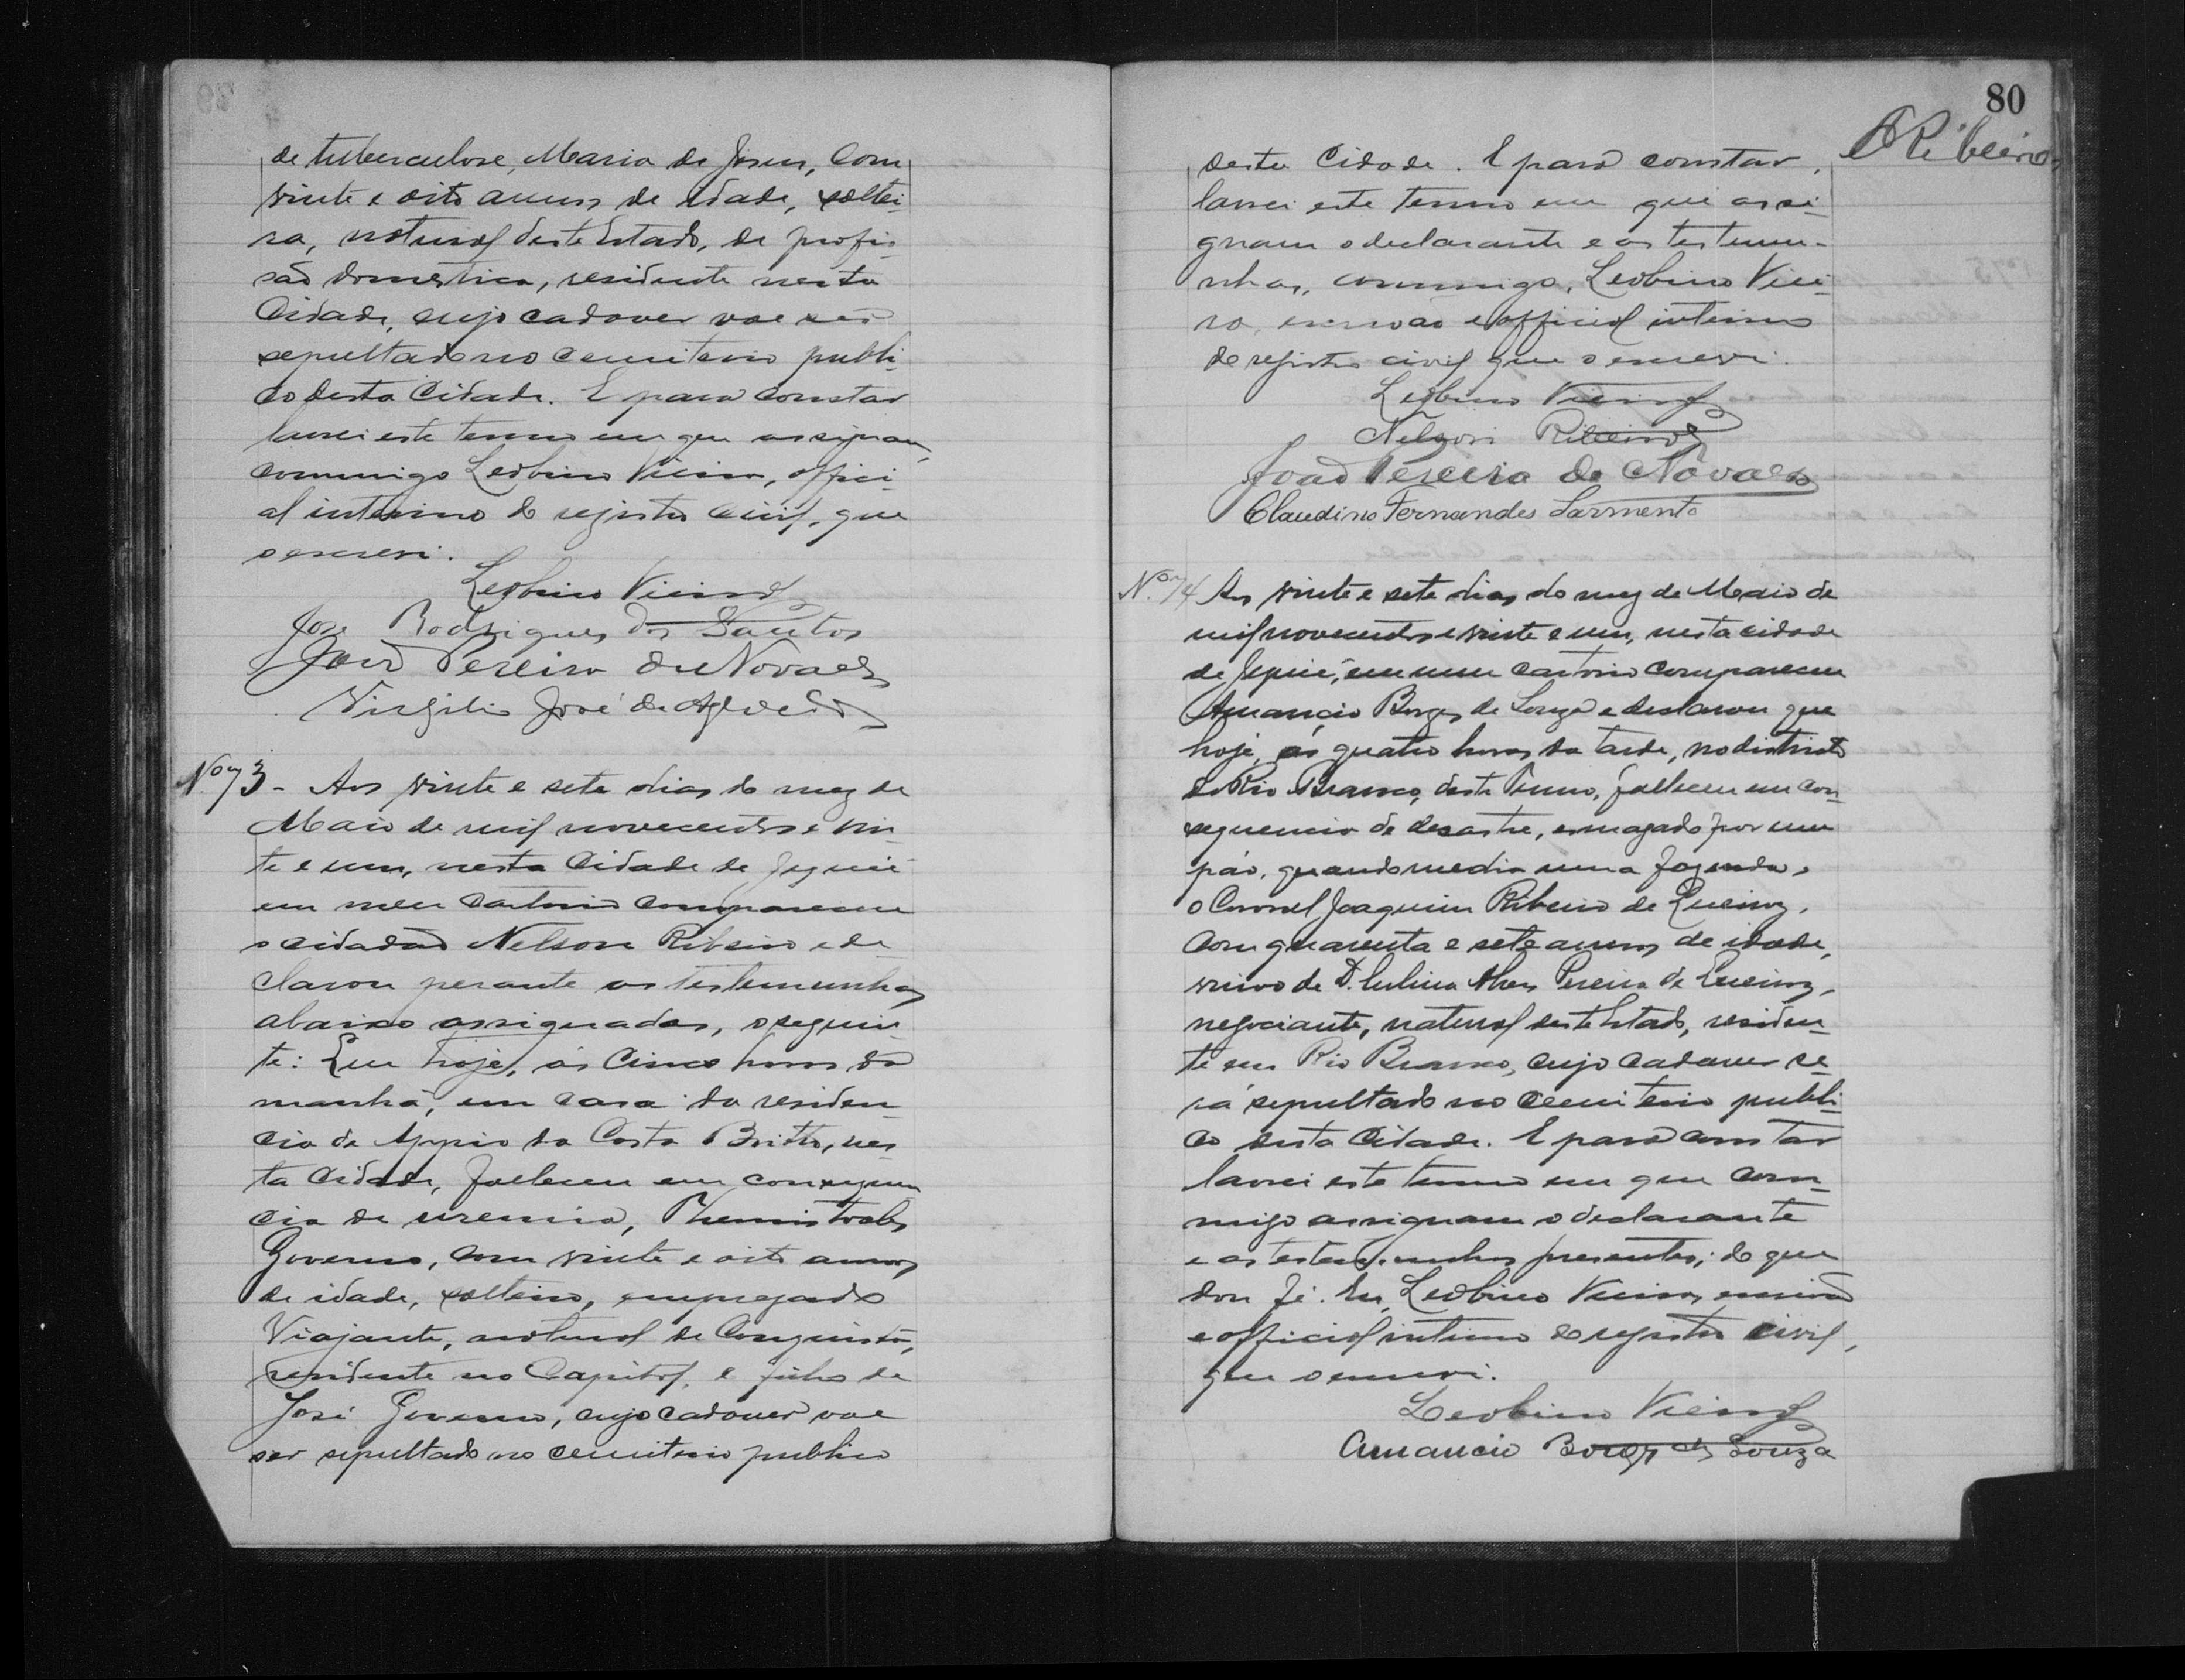 de tuberculose, Maria de Jesus, com
vinte e oito annos de idade, soltei-
ra, natural deste Estado, de profis-
são domestica, residente nesta
Cidade, cujo cadaver vae ser
sepultado no cemiterio publi-
co desta Cidade. E para constar
lavrei este termo em que assignam,
commigo Leobino Vieira, offici-
al interino do registro civil, que
o escrevi.
Leobino Vieira
José Rodrigues dos Santos
João Pereira de Novaes
Virgilio José de Azevedo
Nº 73 - Aos vinte e sete dias do mez de
Maio de mil novecentos e vin-
te e um, nesta Cidade de Jequié
em meu Cartorio compareceu
o cidadão Nelson Ribeiro e de-
clarou perante as testemunhas
abaixo assignadas, o seguin-
te: Que hoje, ás cinco horas da
manhã, em casa da residen-
cia de Appio da Costa Britto, nes-
ta Cidade, falleceu em consequen-
cia de uremia, Themistocles
Governo, com vinte e oito annos
de idade, solteiro, empregado
Viajante, natural de Conquista,
residente na Capital, e filho de
José Governo, cujo cadaver vae
ser sepultado no cemiterio publico
80
Ribeiro
desta Cidade. E para constar,
lavrei este termo em que assi-
gnam o declarante e as testemu-
nhas, commigo, Leobino Viei-
ra, escrivão e official interino
do registro civil que o escrevi.
Leobino Vieira
Nelson Ribeiro
João Pereira de Novaes
Claudino Fernandes Sarmento
Nº 74 Aos vinte e sete dias do mez de Maio de
mil novecentos e vinte e um, nesta cidade
de Jequié, em meu cartorio compareceu
Amancio Borges de Souza e declarou que
hoje, ás quatro horas da tarde, no districto
do Rio Branco, deste Termo, falleceu em con-
sequencia de desastre, esmagado por um
páo, quando media uma fazenda,
o Coronel Joaquim Ribeiro de Queiroz,
com quarenta e sete annos de idade,
viuvo de D. Alves Pereira de Queiroz,
negociante, natural deste Estado, residen-
te em Rio Branco, cujo cadaver se-
rá sepultado no cemiterio publi-
co desta Cidade. E para constar
lavrei este termo em que com-
migo assignam o declarante
e as testemunhas presentes; do que
dou fé. Eu, Leobino Vieira, escrivão
e official interino do registro civil,
que o escrevi.
Leobino Vieira
Amancio Borges de Souza